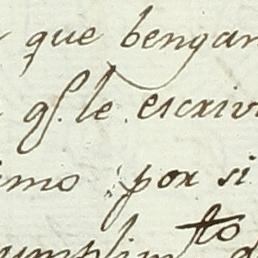 que bengan
qe. le escriv
imo por si
cumplimto